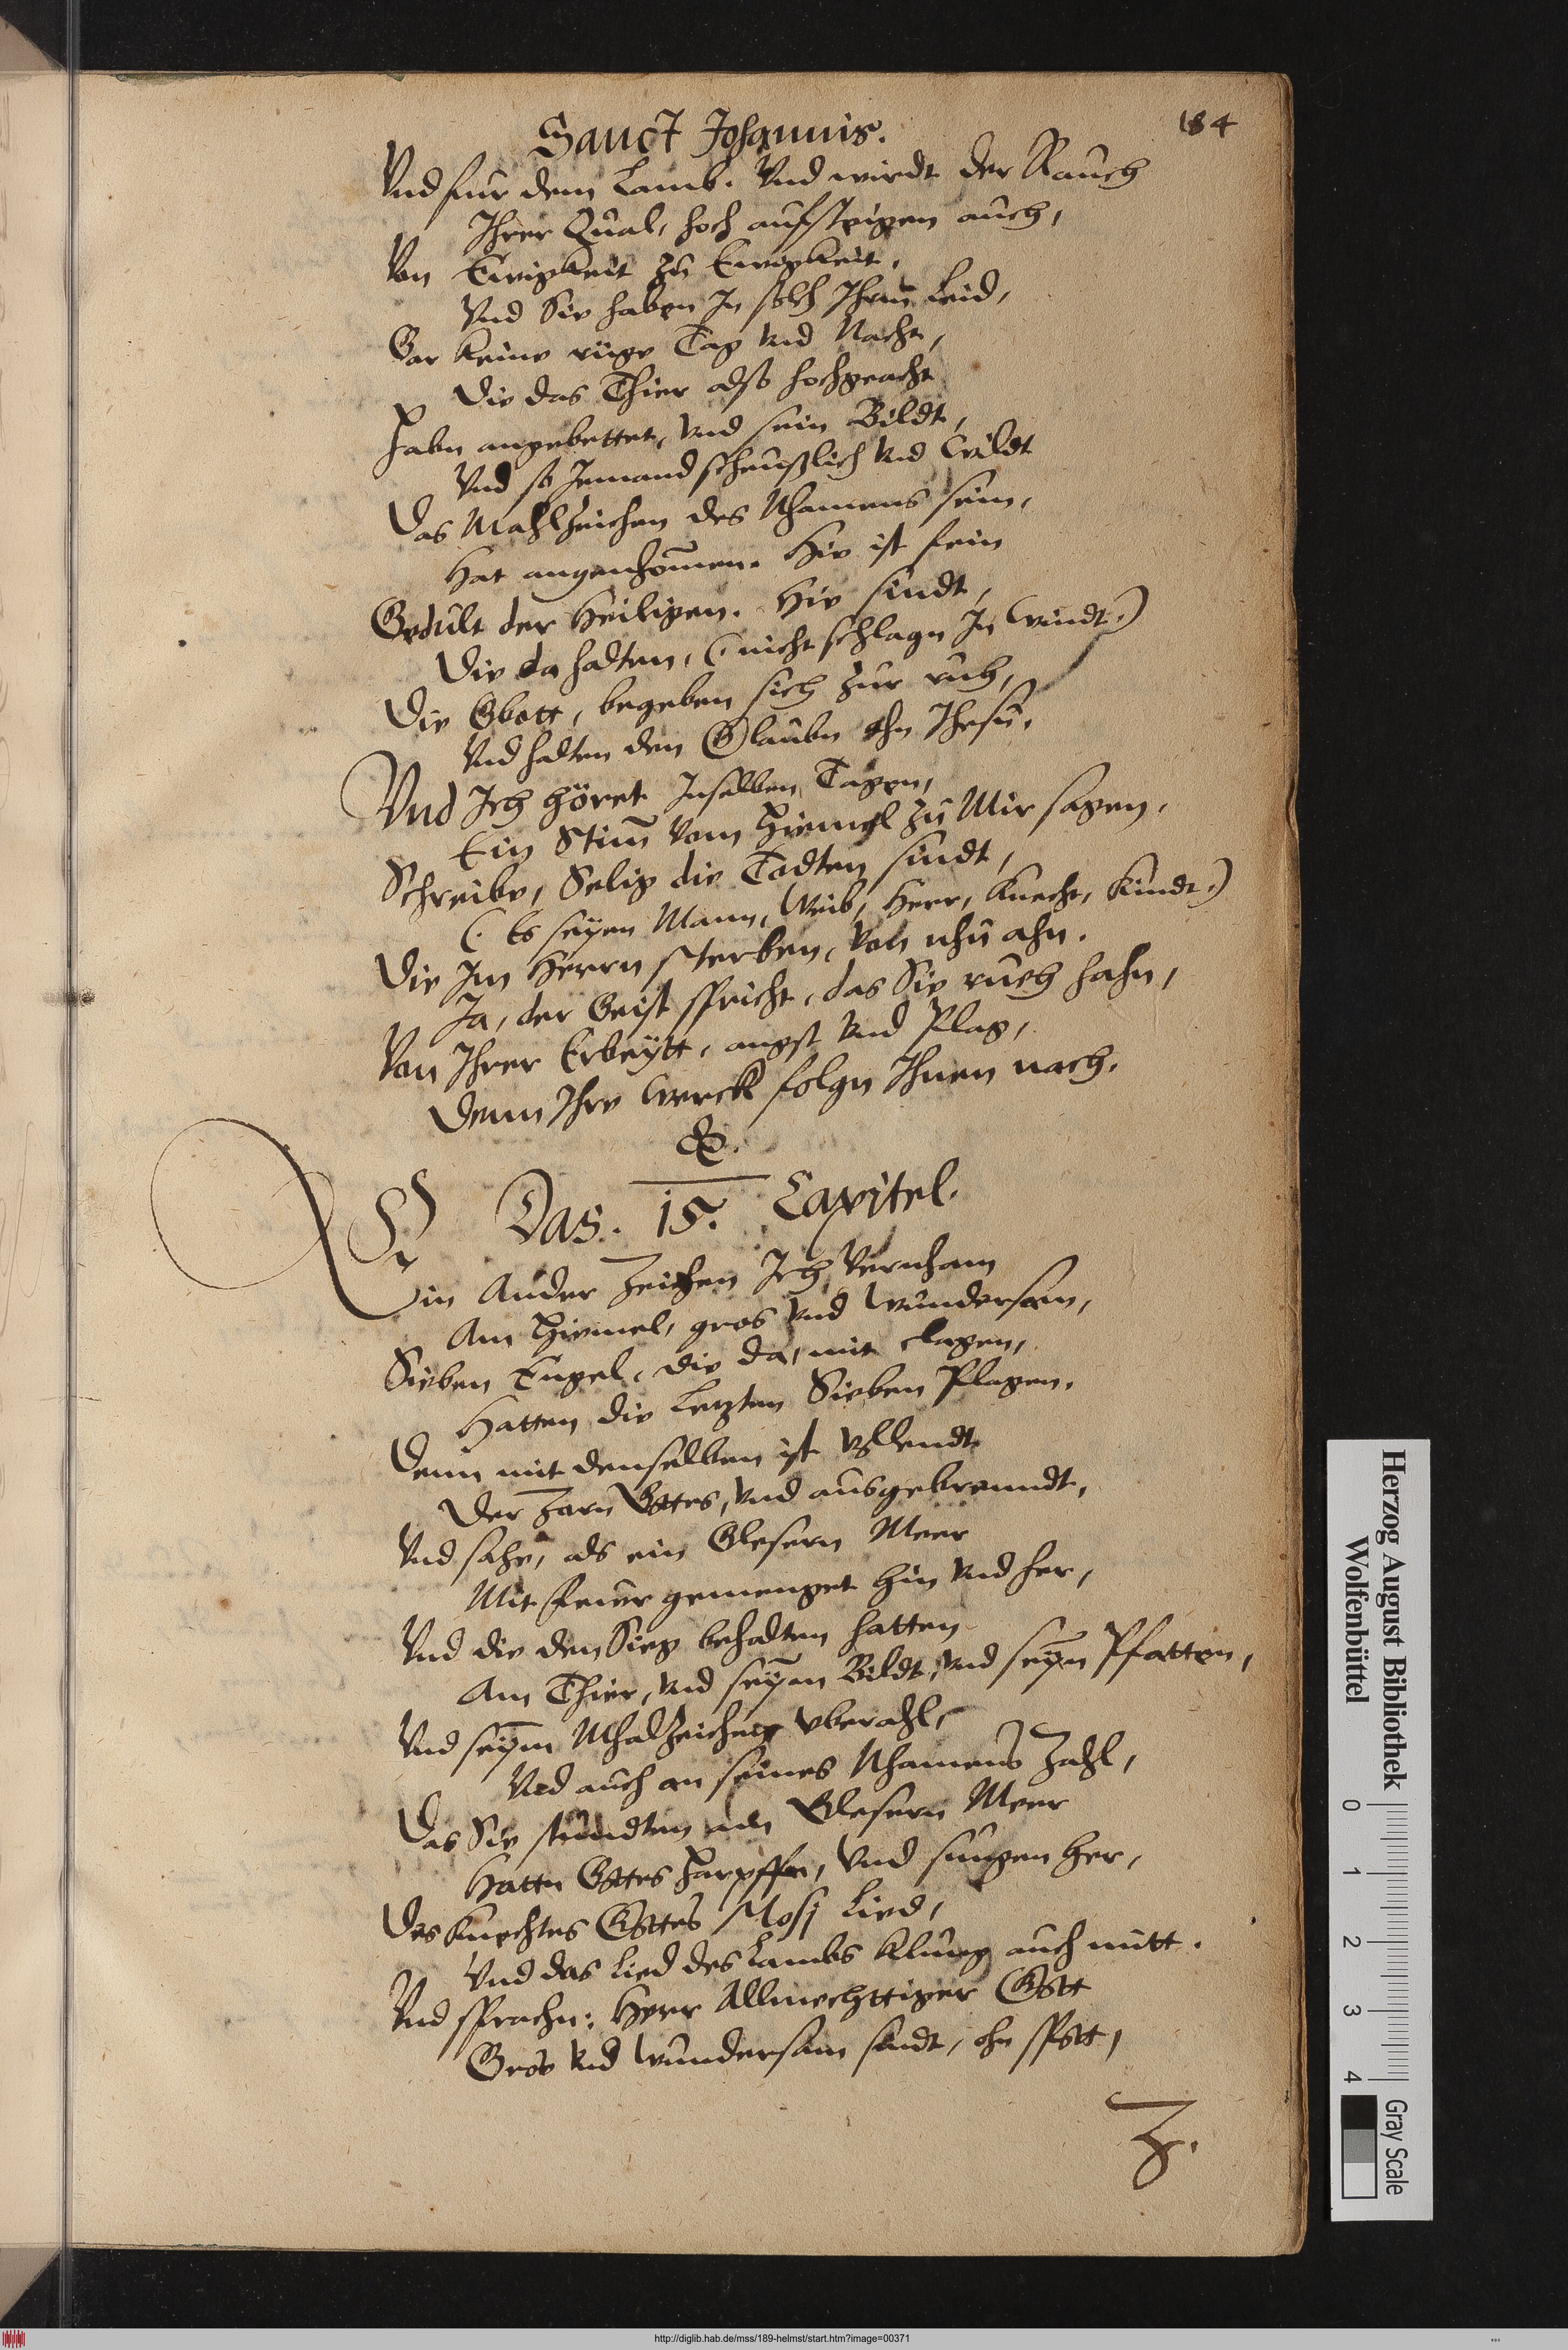 184
Sanct Johannis.
Vnd fur dem Lamb. Vnd wirdt der Rauch
Ihrer Qual, hoch aufsteigen auch,
Von Ewigkeit zu Ewigkeit,
Vnd Sie haben In solch Ihrm Leid,
Gar keine ruge Tag vnd Nacht,
Die das Thier also hochgeacht
Habn angebettet, vnd sein Bildt,
Vnd so Jemand scheußlich vnd Wildt
Das Mahlzeichen des Nhamens sein,
Hat angenhommen. Hie ist fein
Gedult der Heiligen. Hie sindt,
Die da halten, (nicht schlagn In Windt.)
Die Gbott, begeben sich zur ruh,
Vnd halten den Glaubn ahn Jhesu.
Vnd Ich höret Inselben Tagen,
Ein Stim vom Himmel zu Mir sagen,
Schreibe, Selig die Todten sindt,
(Es seyen Mann, Weib, Herr, Knecht, Kindt.)
Die Im Herrn sterben, von nhu ahn.
Ja, der Geist spricht, das Sie rueh hahn,
Von Ihrer Erbeytt, angst vnd Plag,
Denn Ihre Werck folgn Ihnen nach.
&.
Das. 15. Capitel.
Ein Ander Zeichen Ich vernham
Am Himmel, gros vnd Wundersam,
Sieben Engel, die da, mit clagen,
Hatten die Letzten Sieben Plagen.
Denn mit denselben ist vollendt
Der Zorn Gottes, vnd ausgebrenndt,
Vnd sahe, als ein Glesern Meer
Mit Feuer gemenget hin vnd her,
Vnd die den Sieg behalten hatten
Am Thier, vnd seym Bildt, vnd seyn Pfatten,
Vnd seym Mhalzeichen vberahl,
Vnd auch an seines Nhamens Zahl,
Das Sie stundten am Glesern Meer
Hattn Gottes Harpffen, vnd sungen her,
Des Knechtes Gottes Mosj Lied,
Vnd das Lied des Lambs klung auch mitt.
Vnd sprachn: Herr Allmechttiger Gott
Gros vnd Wundersam sindt, ohn spott,
Herzog August Bibliothek
Wolfenbüttel
0 1 2 3 4
Gray Scale
http://diglib.hab.de/mss/189-helmst/start.htm?image=00371